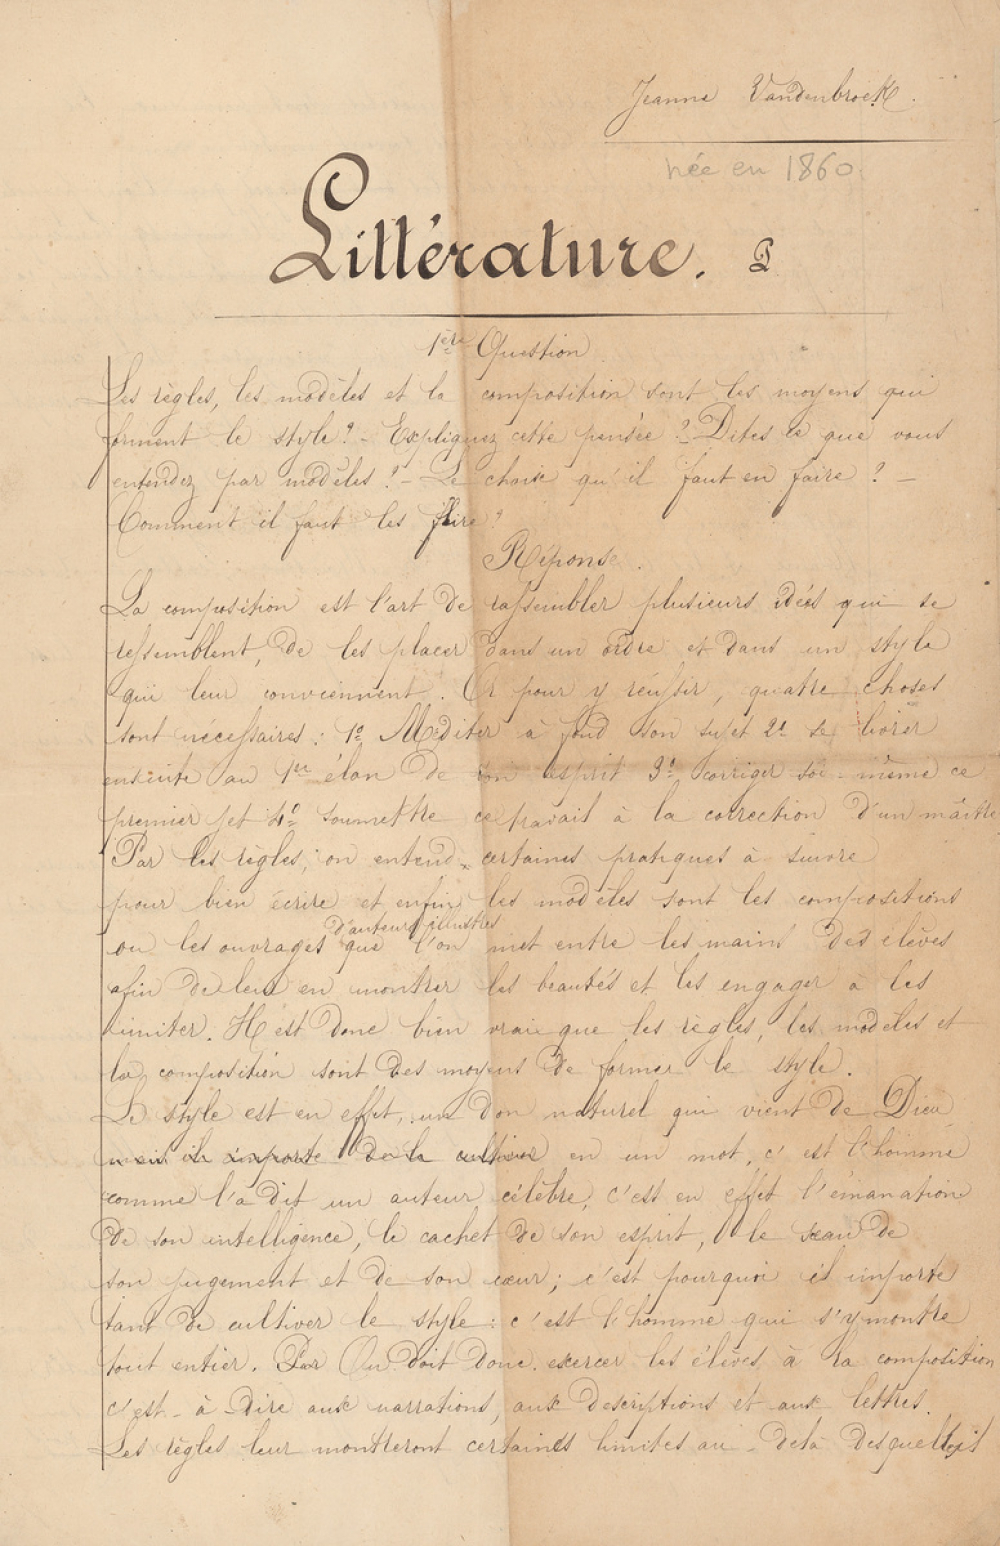 Jeanne Vandenbroek.
née en 1860.
Littérature.
1ère Question
Les règles, les modèles et la composition sont les moyens qui
forment le style? - Expliquez cette pensée? - Dites ce que vous
entendez par modèles? - Le choix qu'il faut en faire? -
Comment il faut les lire?
Réponse.
La composition est l'art de rassembler plusieurs idées qui se
ressemblent, de les placer dans un ordre et dans un style
qui leur conviennent. Or pour y réussir, quatre choses
sont nécessaires: 1º Méditer à fond son sujet 2º se livrer
ensuite au 1er élan de son esprit 3º corriger soi-même ce
premier jet 4º soumettre ce travail à la correction d'un maître
Par les règles, on entend certaines pratiques à suivre
pour bien écrire et enfin les modèles sont les compositions
d'auteurs illustres
ou les ouvrages que l'on met entre les mains des élèves
afin de leur en montrer les beautés et les engager à les
imiter. Il est donc bien vrai que les règles, les modèles et
la composition sont des moyens de former le style.
Le style est en effet, un don naturel qui vient de Dieu
mais il importe de le cultiver en un mot, c'est l'homme
comme l'a dit un auteur célèbre, c'est en effet l'émanation
de son intelligence, le cachet de son esprit, le sceau de
son jugement et de son cœur; c'est pourquoi il importe
tant de cultiver le style: c'est l'homme qui s'y montre
tout entier. Par On doit donc exercer les élèves à la composition
c'est-à-dire aux narrations, aux descriptions et aux lettres.
Les règles leur montreront certaines limites au-delà